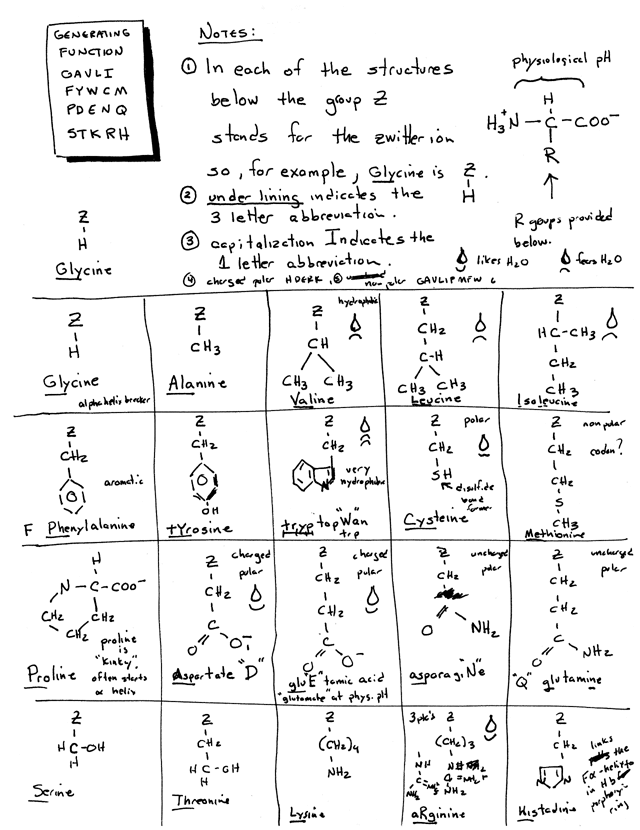 GENERATING
FUNCTION
GAVLI
FYWCM
PDENQ
STKRH
NOTES:
① In each of the structures
below the group Z
stands for the zwitterion
so, for example, Glycine is Z
H
② underlining indicates the
3 letter abbreviation.
③ capitalization Indicates the
1 letter abbreviation.
④ charged polar HDERK, ⑤ nonpolar GAVLIPMFW C
physiological pH
H
H₃N⁺ - C - COO⁻
R
R groups provided
below.
likes H₂O
fears H₂O
Z
H
Glycine
Z
H
Glycine
alpha helix breaker
Z
CH₃
Alanine
hydrophobic
Z
CH
CH₃ CH₃
Valine
Z
CH₂
C-H
CH₃ CH₃
Leucine
Z
HC-CH₃
CH₂
CH₃
Isoleucine
Z
CH₂
aromatic
F Phenylalanine
Z
CH₂
OH
tYrosine
Z
CH₂
N
very
hydrophobic
tryptop"Wan
trp
Z
polar
CH₂
SH
disulfide
bond
former
Cysteine
Z
nonpolar
CH₂
codon?
CH₂
S
CH₃
Methionine
H
N - C - COO⁻
CH₂ CH₂
CH₂
proline
is
"kinky"
often starts
α helix
Proline
Z
charged
polar
CH₂
C
O O⁻
Aspartate "D"
Z
charged
polar
CH₂
CH₂
C
O O⁻
glu"E"tamic acid
"glutamate" at phys. pH
Z
uncharged
polar
CH₂
O NH₂
asparagi"N"e
Z
uncharged
polar
CH₂
CH₂
C
O NH₂
"Q" glutamine
Z
HC-OH
H
Serine
Z
CH₂
HC-OH
H
Threonine
Z
(CH₂)₄
NH₂
Lysine
3 pks's Z
(CH₂)₃
NH
NH₂
aRginine
Z
CH₂
N
links
the
Fα-helix to
in Hb
porphyrin
ring
Histadine